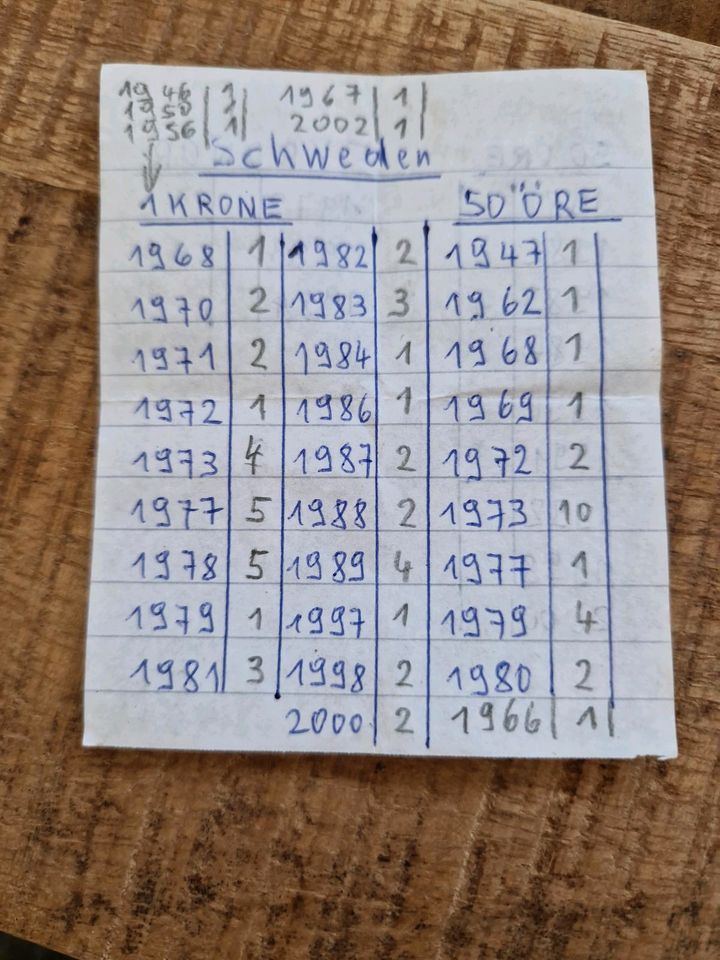 1946 | 1 | 1967 | 1 |
1950 | 1 |
1956 | 1 | 2002 | 1 |
Schweden
1 KRONE 50 ÖRE
1968 1 1982 2 1947 1
1970 2 1983 3 1962 1
1971 2 1984 1 1968 1
1972 1 1986 1 1969 1
1973 4 1987 2 1972 2
1977 5 1988 2 1973 10
1978 5 1989 4 1977 1
1979 1 1997 1 1979 4
1981 3 1998 2 1980 2
2000 2 1966 1